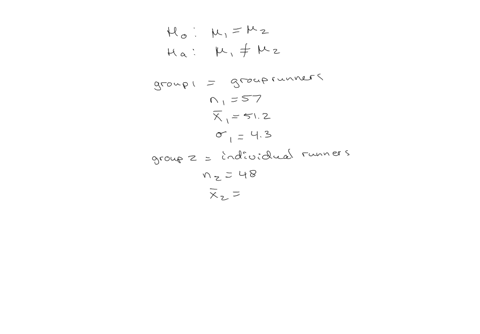 H₀: μ₁ = μ₂
Ha: μ₁ ≠ μ₂
group 1 = group runners
n₁ = 57
x̄₁ = 51.2
σ₁ = 4.3
group 2 = individual runners
n₂ = 48
x̄₂ =